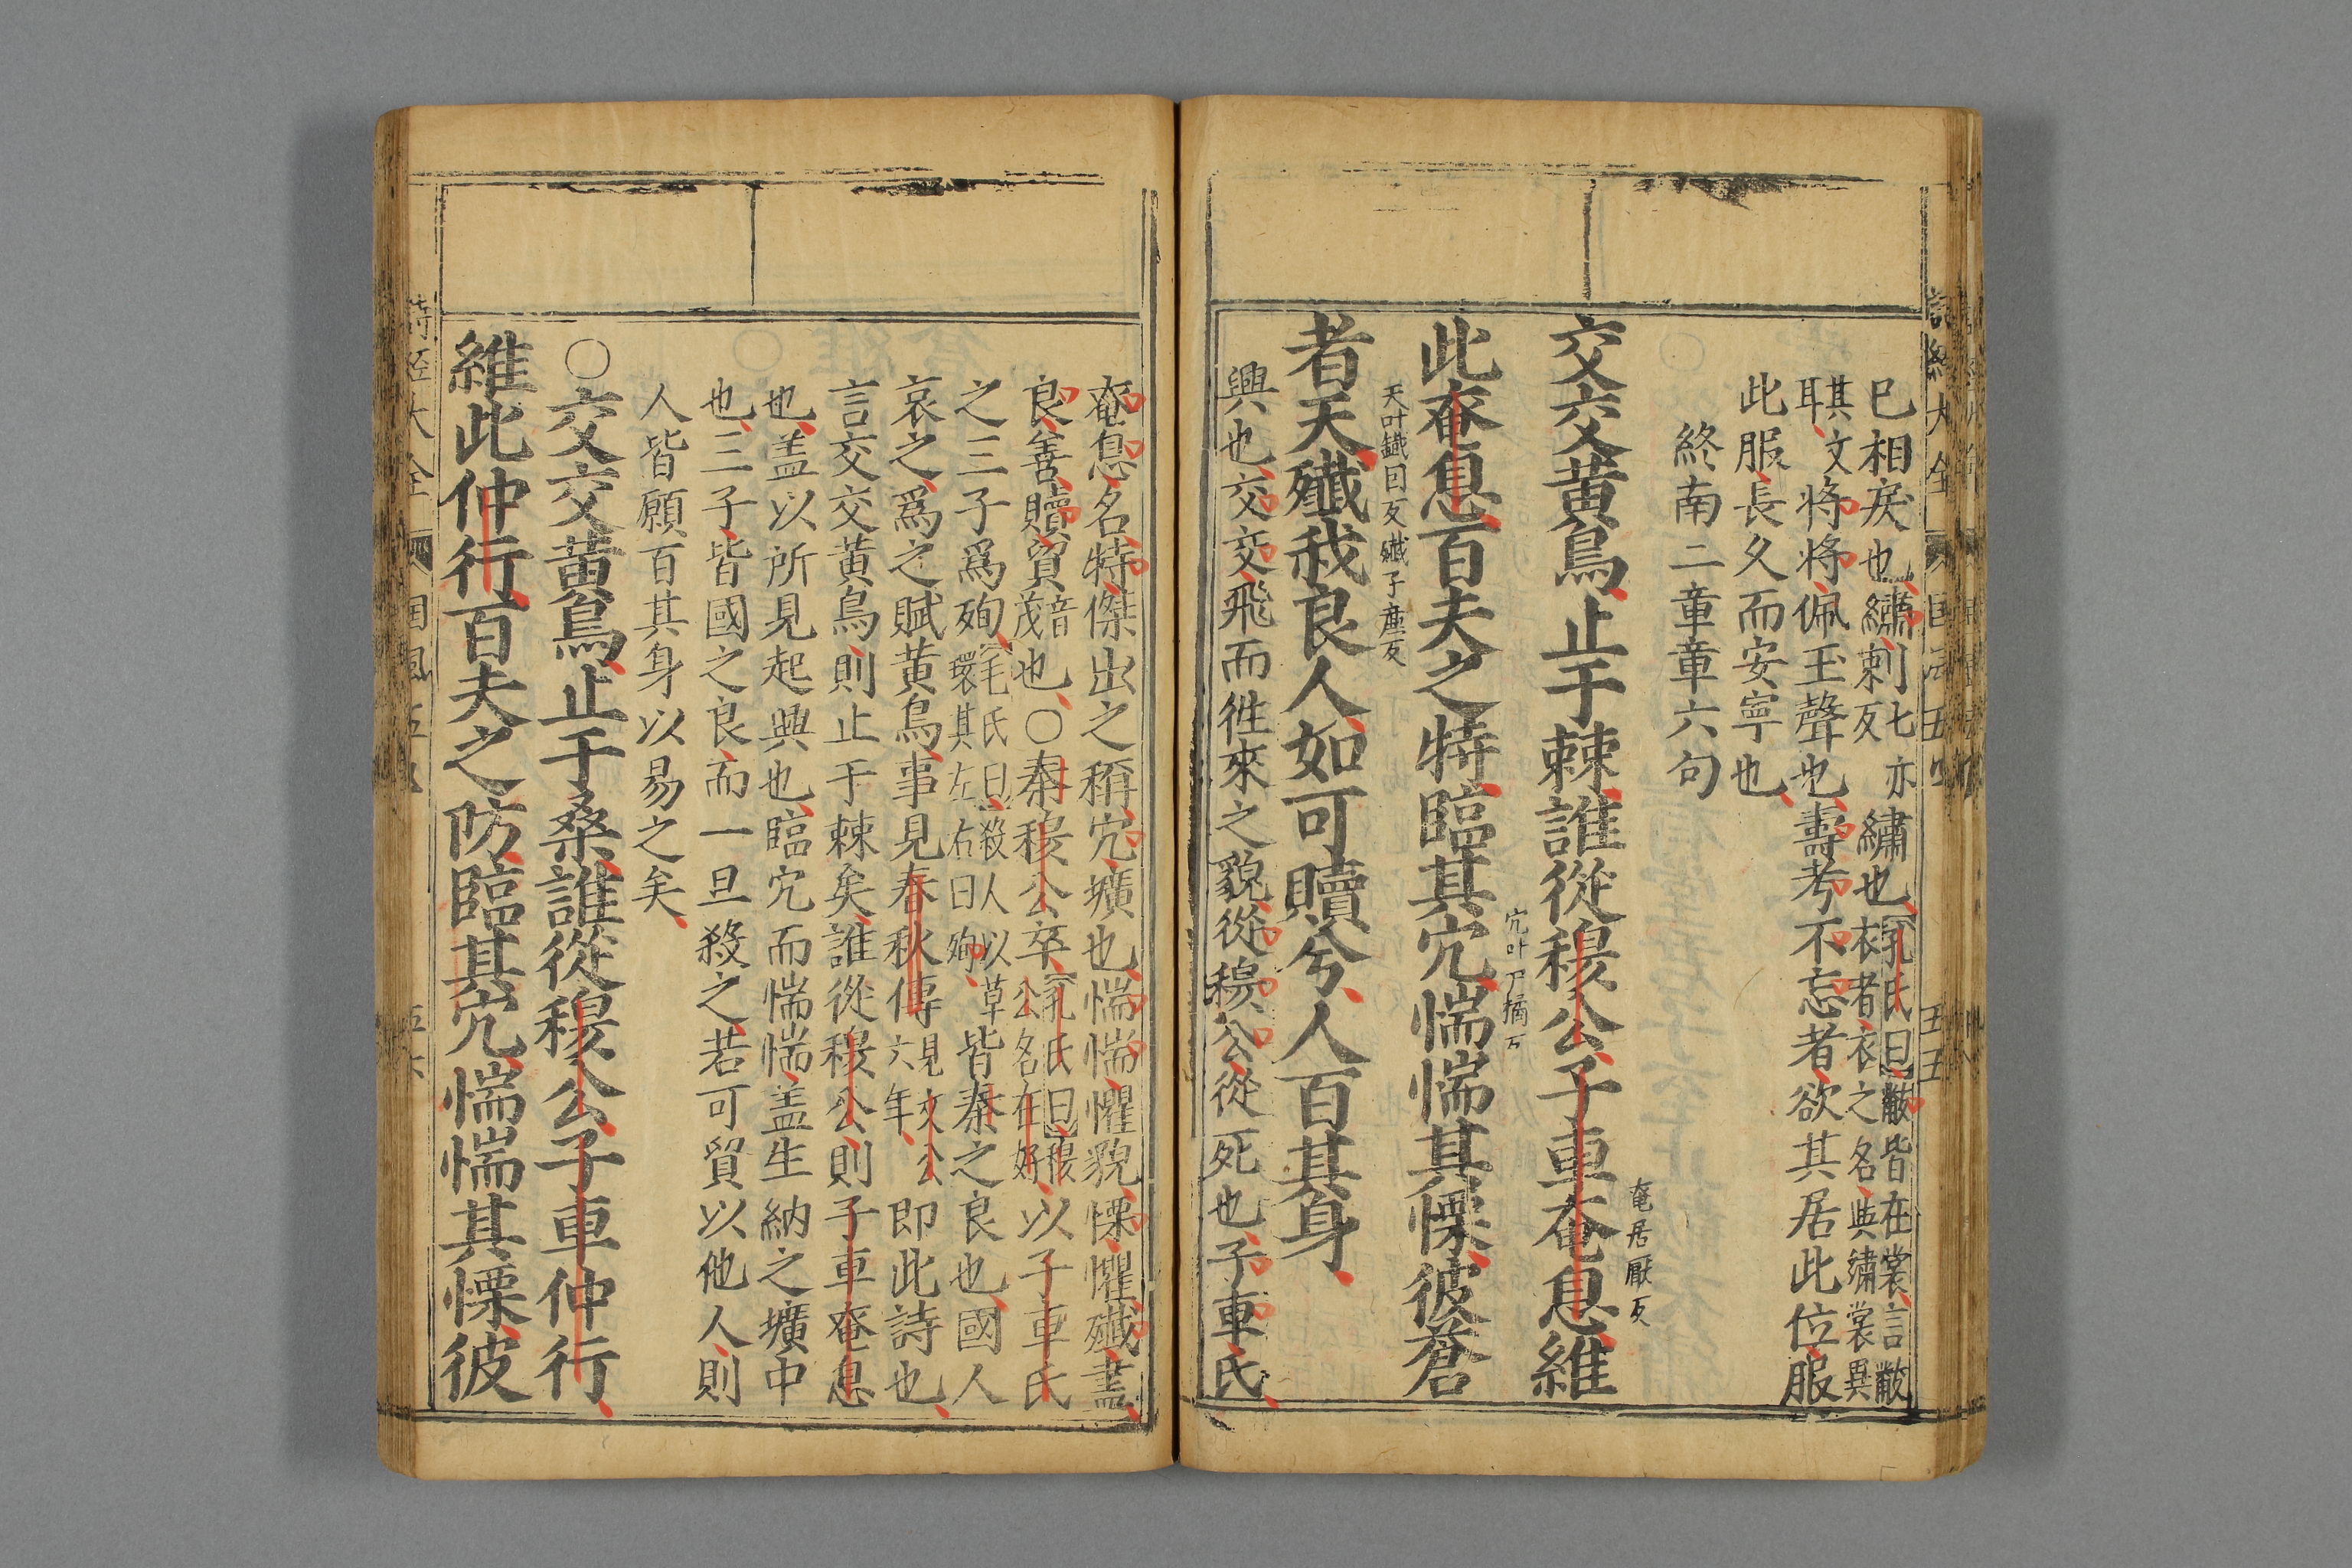 已相戾也繡刺七亦反繡也孔氏曰黻皆在裳言黻衣者衣之名與繡裳異
耳其文將將佩玉聲也壽考不忘者欲其居此位服
此服長久而安寧也
終南二章章六句
交交黃鳥止于棘誰從穆公子車奄息維
奄居厭反
此奄息百夫之特臨其穴惴惴其慄彼蒼
穴叶戶橘反
者天殲我良人如可贖兮人百其身
天叶鐵因反殲子廉反
興也交交飛而徃來之貌從穆公從死也子車氏
奄息名特傑出之稱穴壙也惴惴懼貌慄懼殲盡
良善贖貿音茂也〇秦穆公卒孔氏曰穆公名任好以子車氏
之三子爲殉毛氏曰殺人以草環其左右曰殉皆秦之良也國人
哀之爲之賦黃鳥事見春秋傳見文公六年即此詩也
言交交黃鳥則止于棘矣誰從穆公則子車奄息
也盖以所見起興也臨穴而惴惴盖生納之壙中
也三子皆國之良而一旦殺之若可貿以他人則
人皆願百其身以易之矣
〇交交黃鳥止于桑誰從穆公子車仲行
維此仲行百夫之防臨其穴惴惴其慄彼